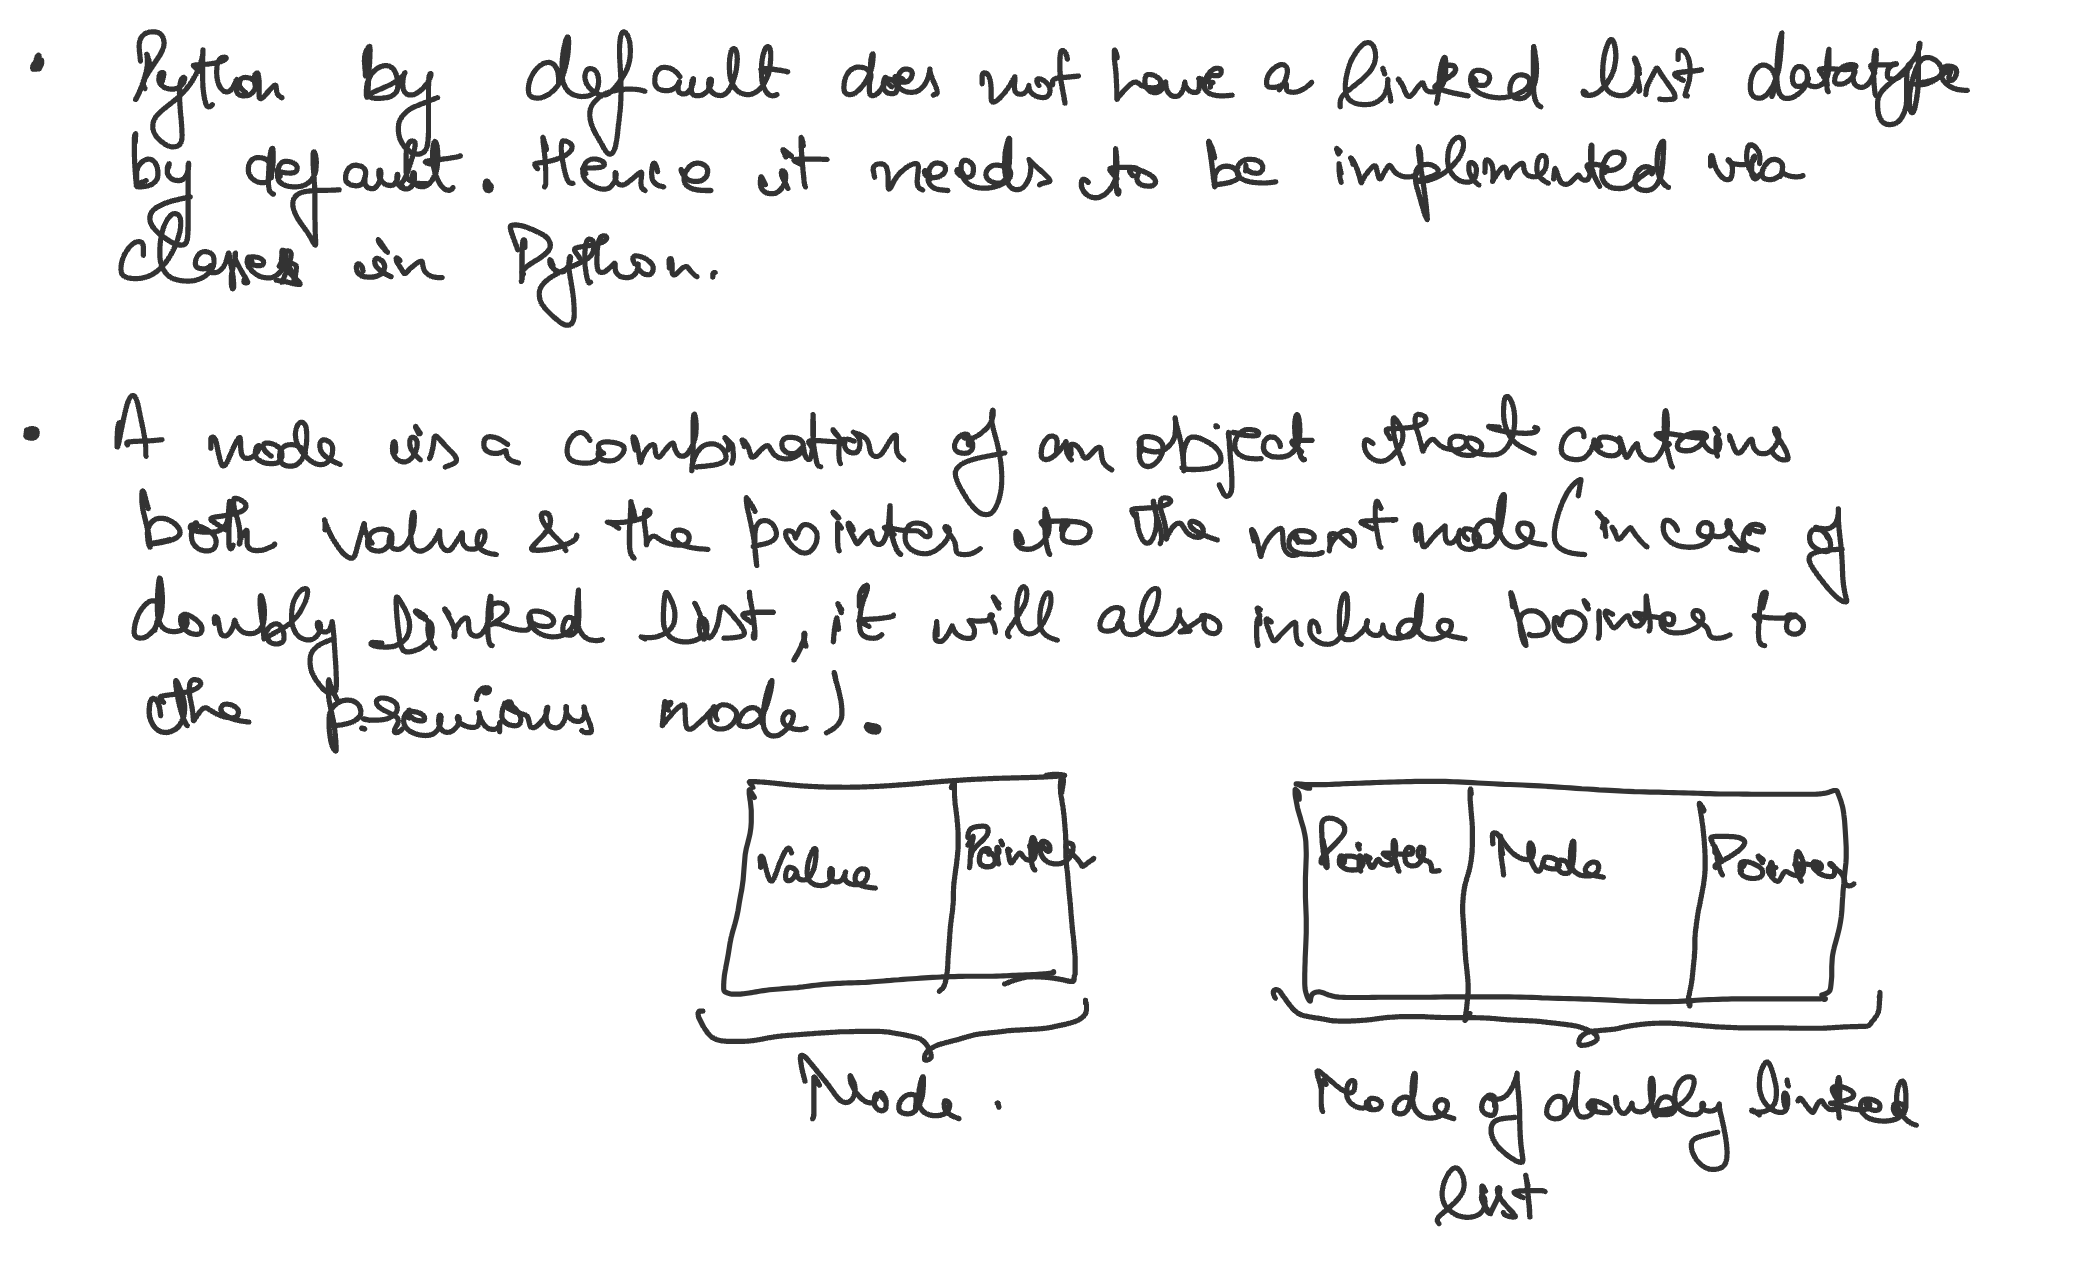 • Python by default does not have a linked list datatype
by default. Hence it needs to be implemented via
classes in Python.
• A node is a combination of an object that contains
both value & the pointer to the next node (in case of
doubly linked list, it will also include pointer to
the previous node).
Value Pointer
Pointer Node Pointer
Node.
Node of doubly linked
list